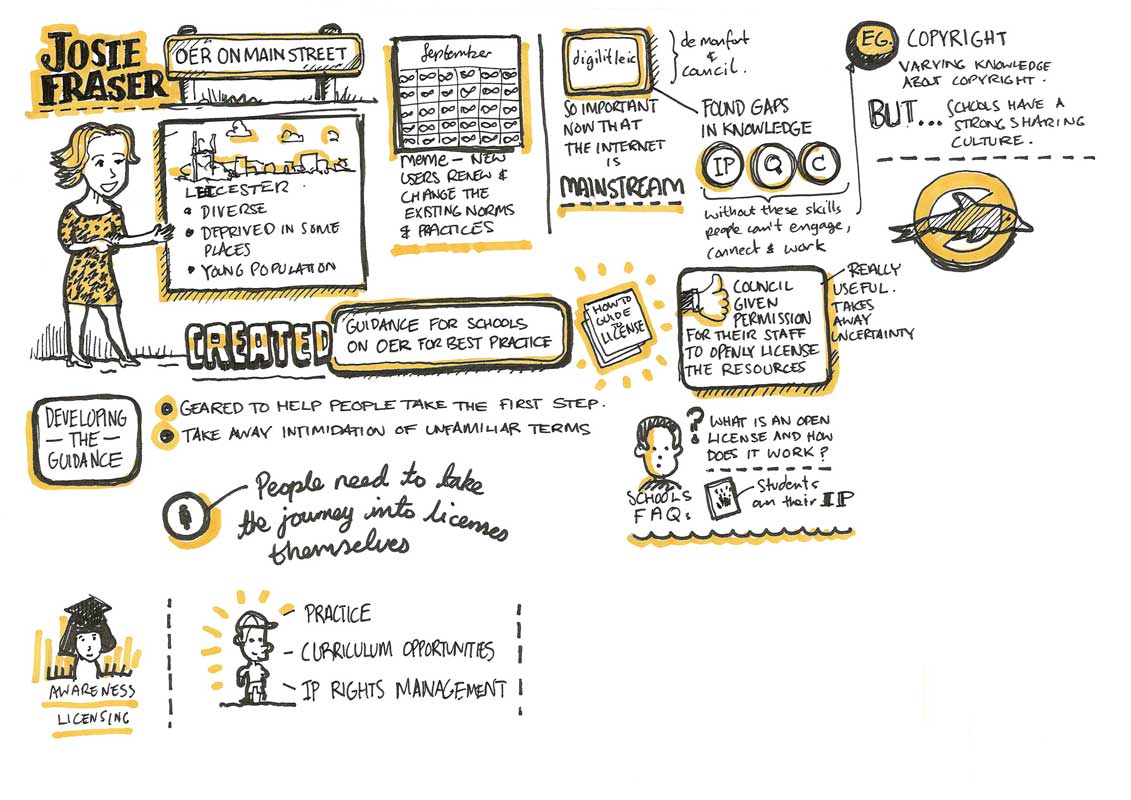 JOSIE
FRASER
OER ON MAIN STREET
LEICESTER.
• DIVERSE
• DEPRIVED IN SOME
PLACES
• YOUNG POPULATION
September
MEME – NEW
USERS RENEW &
CHANGE THE
EXISTING NORMS
& PRACTICES
digilitleic
de monfort
&
council.
SO IMPORTANT
NOW THAT
THE INTERNET
IS
MAINSTREAM
FOUND GAPS
IN KNOWLEDGE
IP
C
without these skills
people can't engage,
connect & work
EG. COPYRIGHT
VARYING KNOWLEDGE
ABOUT COPYRIGHT.
BUT... SCHOOLS HAVE A
STRONG SHARING
CULTURE.
CREATED
GUIDANCE FOR SCHOOLS
ON OER FOR BEST PRACTICE
HOW TO
GUIDE
TO
LICENSE
COUNCIL
GIVEN
PERMISSION
FOR THEIR STAFF
TO OPENLY LICENSE
THE RESOURCES
REALLY
USEFUL.
TAKES
AWAY
UNCERTAINTY
DEVELOPING
– THE –
GUIDANCE
• GEARED TO HELP PEOPLE TAKE THE FIRST STEP.
• TAKE AWAY INTIMIDATION OF UNFAMILIAR TERMS
People need to take
the journey into licenses
themselves
SCHOOLS
FAQs
? WHAT IS AN OPEN
LICENSE AND HOW
DOES IT WORK?
Students
own their IP
AWARENESS
LICENSING
– PRACTICE
– CURRICULUM OPPORTUNITIES
– IP RIGHTS MANAGEMENT